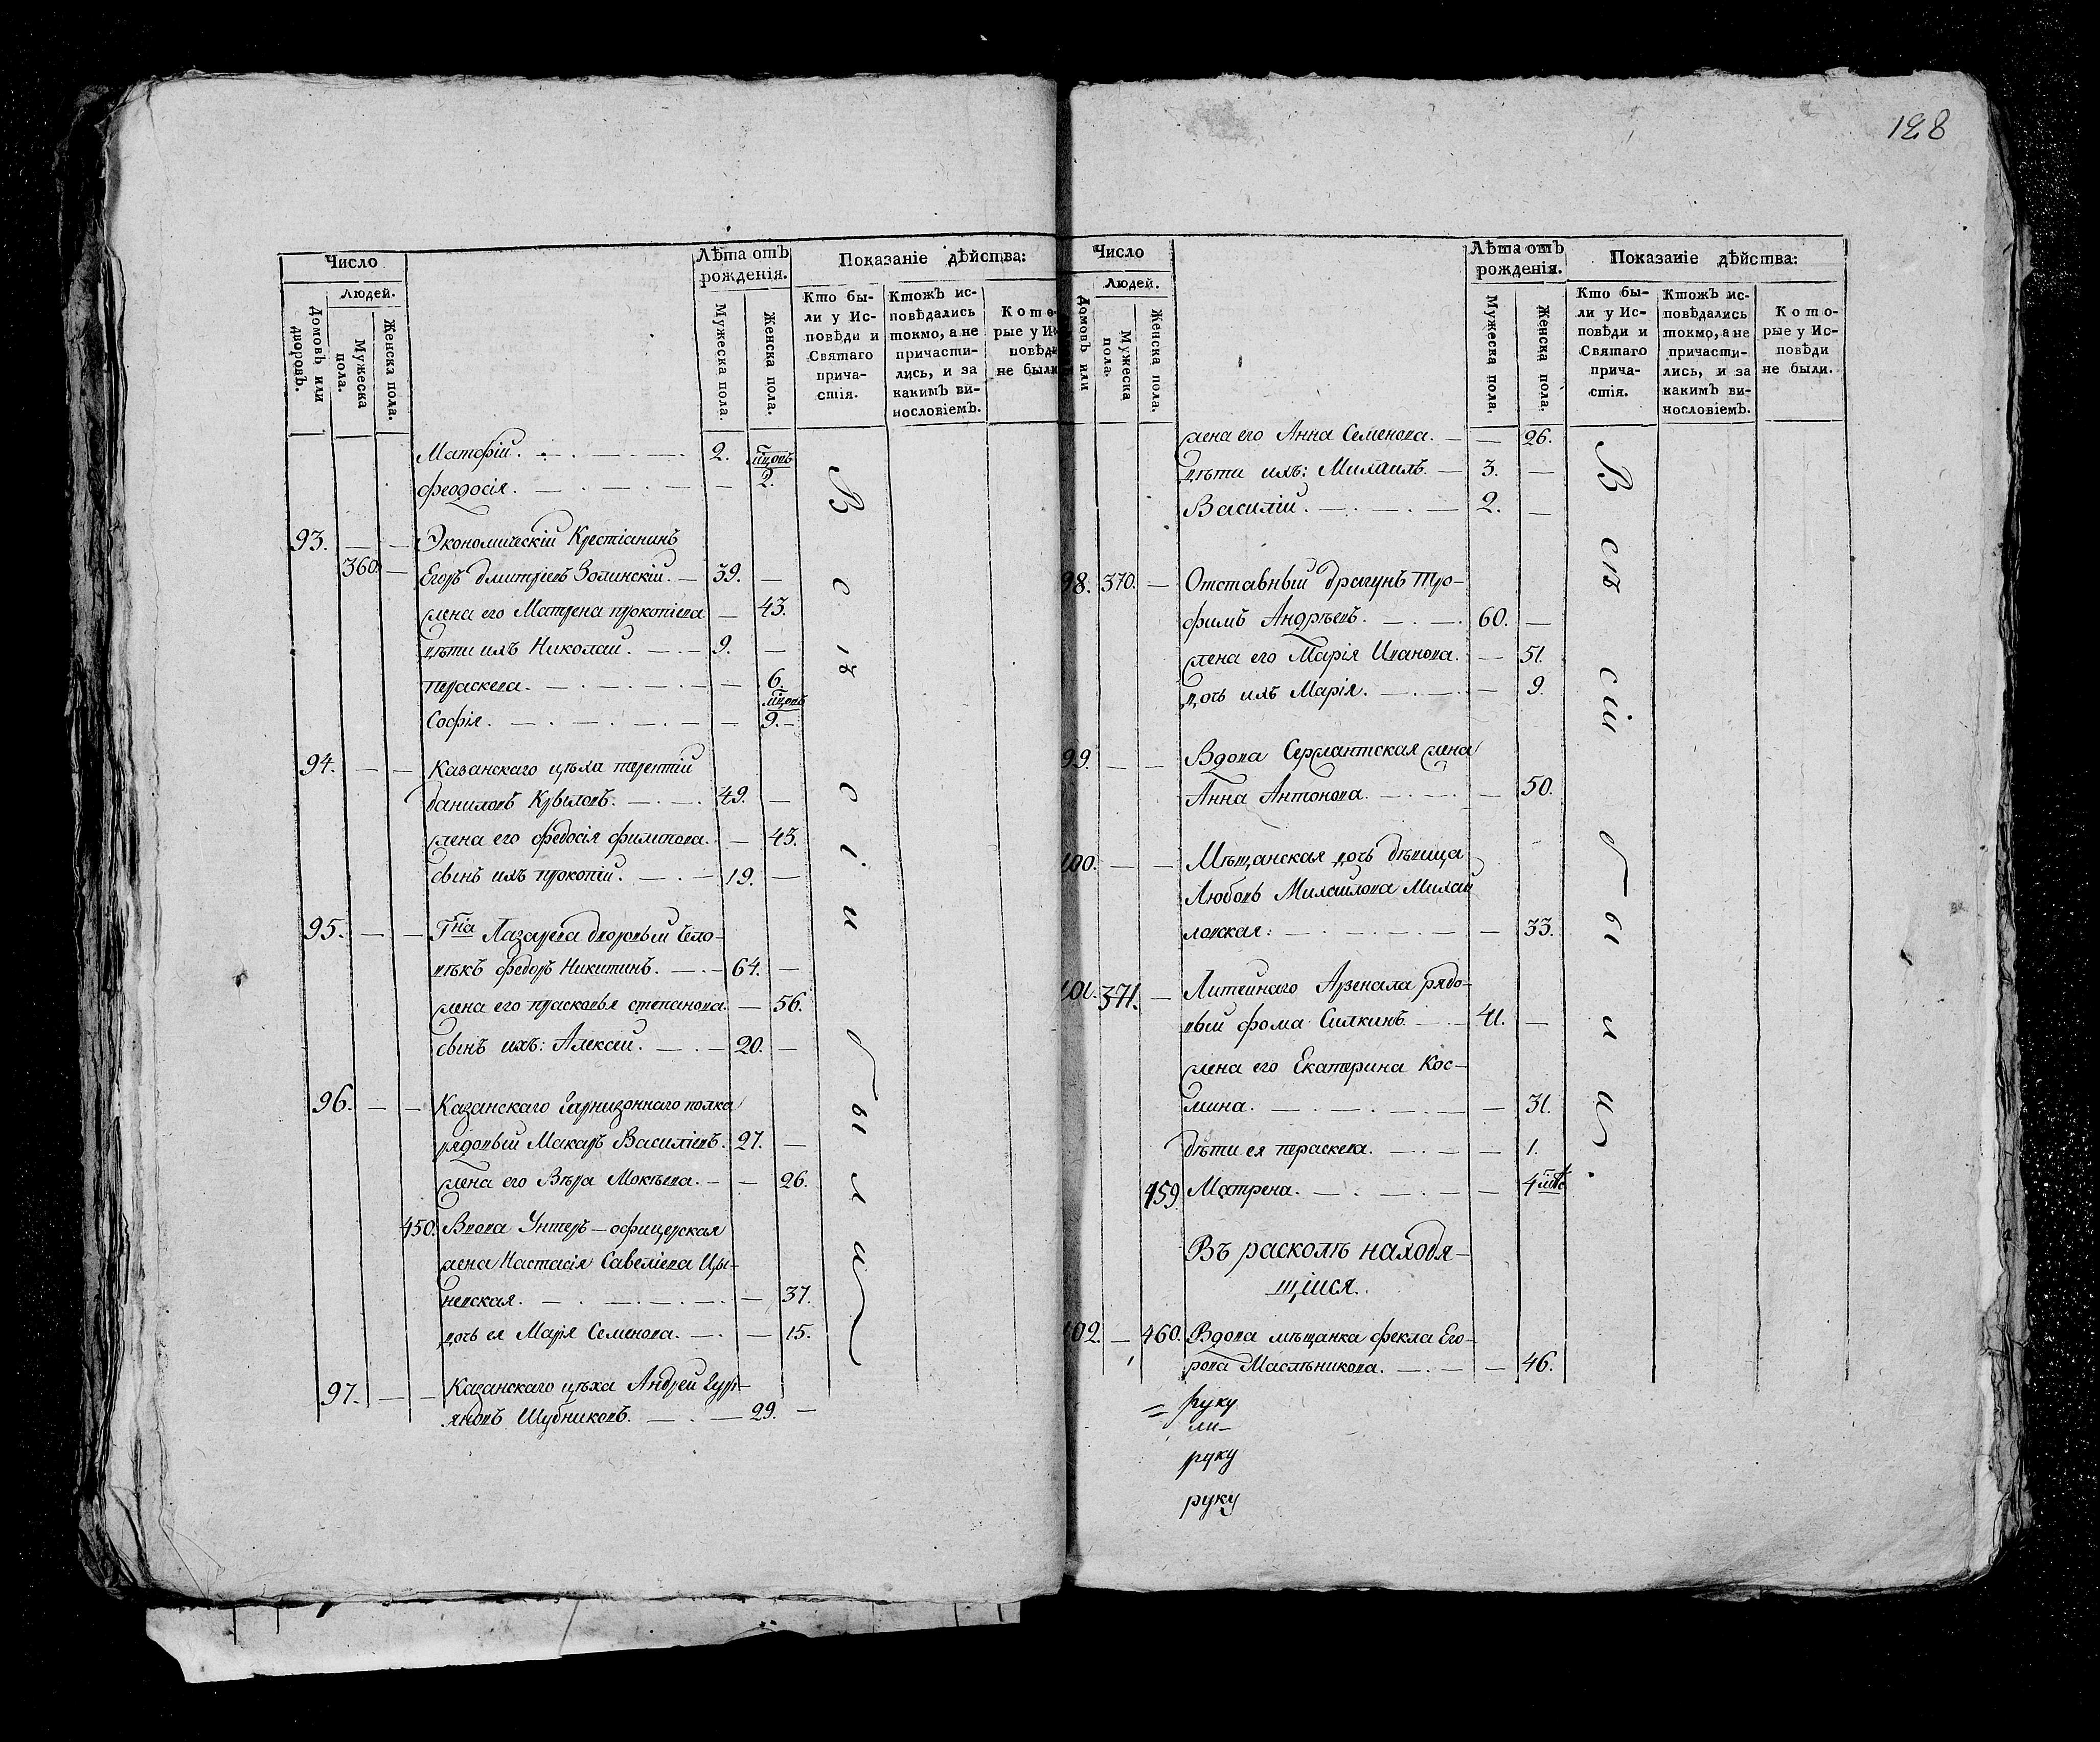 128
Число
Лѣта отъ рожденія.
Показаніе дѣйства:
Людей.
Домовъ или дворовъ.
Мужеска пола.
Женска пола.
Мужеска пола.
Женска пола.
Кто были у Исповѣди и Святаго причастія.
Ктожъ исповѣдались токмо, а не причастились, и за какимъ винословіемъ.
Которые у Исповѣди не были.
Матфій. 2.
феодосія. 2.
93. Экономическій Крестіанинъ
360. Егоръ дмитріевъ Золинскій. 39.
жена его Матрена прокопіева 43.
дѣти ихъ Николай. 9.
параскева. 6.
Софія. 9.
94. Казанскаго цѣха терентій
даниловъ Крыловъ. 49.
жена его федосія филипова. 43.
сынъ ихъ прокопій. 19.
95. Гна Лазарева дворовый чело-
вѣкъ федоръ Никитинъ. 64.
жена его прасковья степанова. 56.
сынъ ихъ: Алексей. 20.
96. Казанскаго гарнизоннаго полка
рядовый Макаръ Василіевъ. 27.
жена его Вѣра Мокѣева. 26.
450. Вдова Унтеръ-офицерская
жена Настасія Савеліева Цы-
невская. 37.
дочь ея Марія Семенова. 15.
97. Казанскаго цѣха Андрей Гурь-
яновъ Шубниковъ. 29.
Всѣ сіи были
Число
Лѣта отъ рожденія.
Показаніе дѣйства:
Людей.
Домовъ или
Мужеска пола.
Женска пола.
Мужеска пола.
Женска пола.
Кто были у Исповѣди и Святаго причастія.
Ктожъ исповѣдались токмо, а не причастились, и за какимъ винословіемъ.
Которые у Исповѣди не были.
жена его Анна Семенова. 26.
дѣти ихъ: Михаилъ. 3.
Василій. 2.
98. 370. Отставный драгунъ Тро-
фимъ Андрѣевъ. 60.
жена его Марія Иванова. 51.
дочь ихъ Марія. 9.
99. Вдова Сержантская жена
Анна Антонова. 50.
100. Мѣщанская дочь дѣвица
Любовь Михаилова Михай
ловская: 33.
101. 371. Литейнаго Арзенала рядо-
вый фома Силкинъ. 41.
жена его Екатерина Кос-
мина. 31.
дѣти ея параскева. 1.
459. Матрена. 4
Въ расколѣ находя-
щіися.
102. 460. Вдова мѣщанка фекла Его-
рова Маслѣникова. 46.
Всѣ сіи были.
руку
ли-
руку
руку